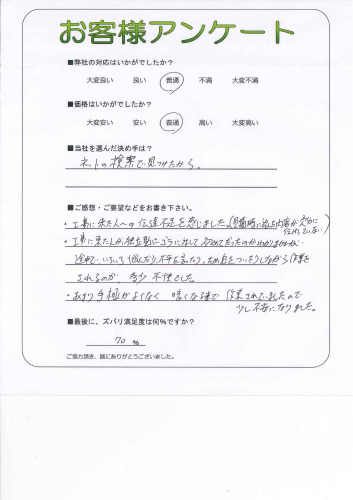 お客様アンケート
■弊社の対応はいかがでしたか？
大変良い 良い 普通 不満 大変不満
■価格はいかがでしたか？
大変安い 安い 普通 高い 大変高い
■当社を選んだ決め手は？
ネットの検索で見つけたから。
■ご感想・ご要望などをお書き下さい。
・工事に来た人への伝達不足を感じました。(見積時の 内容が
伝わっていない)
・工事に来た人が
途中で、いろいろ悩んだり、不平を言ったり、ため息をついたりしながら作業を
されるのが、多少不快でした。
・あまり手際がよくなく 暗くなるまで 作業されていましたので
少し不安になりました。
■最後に、ズバリ満足度は何%ですか？
70 %
ご協力頂き、誠にありがとうございました。